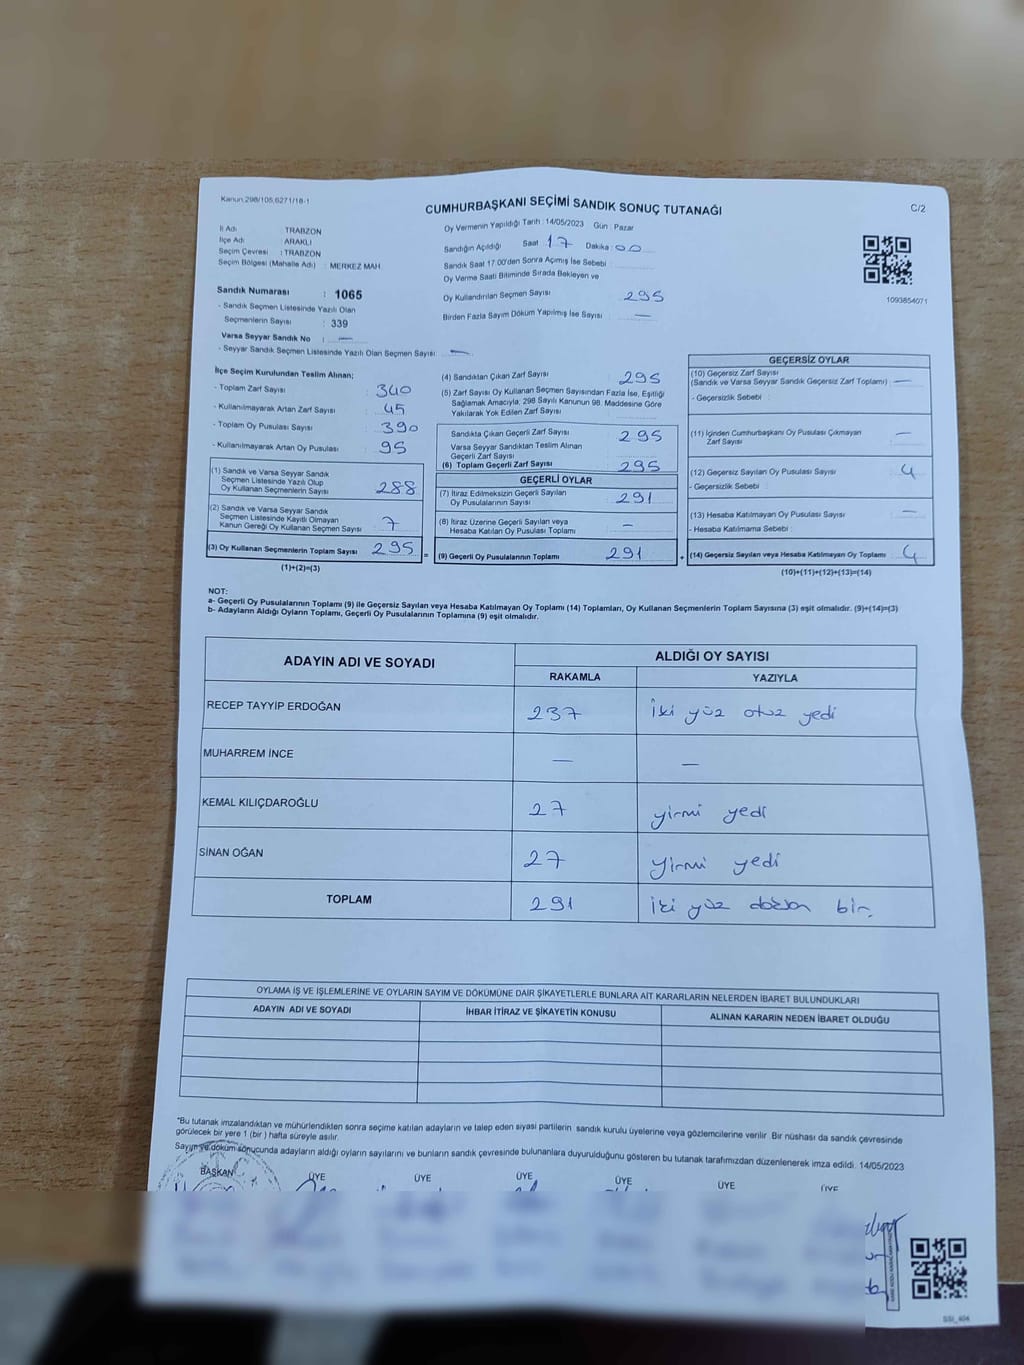 Kanun,298/105,6271/18-1
CUMHURBAŞKANI SEÇİMİ SANDIK SONUÇ TUTANAĞI
C/2
İl Adı : TRABZON
İlçe Adı : ARAKLI
Seçim Çevresi : TRABZON
Seçim Bölgesi (Mahalle Adı) : MERKEZ MAH
Sandık Numarası : 1065
- Sandık Seçmen Listesinde Yazılı Olan
Seçmenlerin Sayısı : 339
Varsa Seyyar Sandık No : —
- Seyyar Sandık Seçmen Listesinde Yazılı Olan Seçmen Sayısı : —
Oy Vermenin Yapıldığı Tarih : 14/05/2023 Gün : Pazar
Sandığın Açıldığı Saat : 17 Dakika : 00
Sandık Saat 17.00'den Sonra Açımış İse Sebebi :
Oy Verme Saati Bitiminde Sırada Bekleyen ve
Oy Kullandırılan Seçmen Sayısı : 295
Birden Fazla Sayım Döküm Yapılmış İse Sayısı : —
1093854071
İlçe Seçim Kurulundan Teslim Alınan;
- Toplam Zarf Sayısı : 340
- Kullanılmayarak Artan Zarf Sayısı : 45
- Toplam Oy Pusulası Sayısı : 390
- Kullanılmayarak Artan Oy Pusulası : 95
(1) Sandık ve Varsa Seyyar Sandık
Seçmen Listesinde Yazılı Olup
Oy Kullanan Seçmenlerin Sayısı : 288
(2) Sandık ve Varsa Seyyar Sandık
Seçmen Listesinde Kayıtlı Olmayan
Kanun Gereği Oy Kullanan Seçmen Sayısı : 7
(3) Oy Kullanan Seçmenlerin Toplam Sayısı : 295 =
(1)+(2)=(3)
(4) Sandıktan Çıkan Zarf Sayısı : 295
(5) Zarf Sayısı Oy Kullanan Seçmen Sayısından Fazla İse, Eşitliği
Sağlamak Amacıyla; 298 Sayılı Kanunun 98. Maddesine Göre
Yakılarak Yok Edilen Zarf Sayısı :
Sandıkta Çıkan Geçerli Zarf Sayısı : 295
Varsa Seyyar Sandıktan Teslim Alınan
Geçerli Zarf Sayısı :
(6) Toplam Geçerli Zarf Sayısı : 295
GEÇERLİ OYLAR
(7) İtiraz Edilmeksizin Geçerli Sayılan
Oy Pusulalarının Sayısı : 291
(8) İtiraz Üzerine Geçerli Sayılan veya
Hesaba Katılan Oy Pusulaları Toplamı : —
(9) Geçerli Oy Pusulalarının Toplamı : 291 +
GEÇERSİZ OYLAR
(10) Geçersiz Zarf Sayısı
(Sandık ve Varsa Seyyar Sandık Geçersiz Zarf Toplamı) : —
- Geçersizlik Sebebi :
(11) İçinden Cumhurbaşkanı Oy Pusulası Çıkmayan
Zarf Sayısı : —
(12) Geçersiz Sayılan Oy Pusulası Sayısı : 4
- Geçersizlik Sebebi :
(13) Hesaba Katılmayan Oy Pusulası Sayısı : —
- Hesaba Katılmama Sebebi :
(14) Geçersiz Sayılan veya Hesaba Katılmayan Oy Toplamı : 4
(10)+(11)+(12)+(13)=(14)
NOT:
a- Geçerli Oy Pusulalarının Toplamı (9) ile Geçersiz Sayılan veya Hesaba Katılmayan Oy Toplamı (14) Toplamları, Oy Kullanan Seçmenlerin Toplam Sayısına (3) eşit olmalıdır. (9)+(14)=(3)
b- Adayların Aldığı Oyların Toplamı, Geçerli Oy Pusulalarının Toplamına (9) eşit olmalıdır.
ADAYIN ADI VE SOYADI
ALDIĞI OY SAYISI
RAKAMLA YAZIYLA
RECEP TAYYİP ERDOĞAN 237 iki yüz otuz yedi
MUHARREM İNCE — —
KEMAL KILIÇDAROĞLU 27 yirmi yedi
SİNAN OĞAN 27 yirmi yedi
TOPLAM 291 iki yüz doksan bir
OYLAMA İŞ VE İŞLEMLERİNE VE OYLARIN SAYIM VE DÖKÜMÜNE DAİR ŞİKAYETLERLE BUNLARA AİT KARARLARIN NELERDEN İBARET BULUNDUKLARI
ADAYIN ADI VE SOYADI İHBAR İTİRAZ VE ŞİKAYETİN KONUSU ALINAN KARARIN NEDEN İBARET OLDUĞU
*Bu tutanak imzalandıktan ve mühürlendikten sonra seçime katılan adayların ve talep eden siyasi partilerin sandık kurulu üyelerine veya gözlemcilerine verilir. Bir nüshası da sandık çevresinde
görülecek bir yere 1 (bir) hafta süreyle asılır.
Sayım ve döküm sonucunda adayların aldığı oyların sayılarını ve bunların sandık çevresinde bulunanlara duyurulduğunu gösteren bu tutanak tarafımızdan düzenlenerek imza edildi. 14/05/2023
BAŞKAN ÜYE ÜYE ÜYE ÜYE ÜYE ÜYE
SSI_404